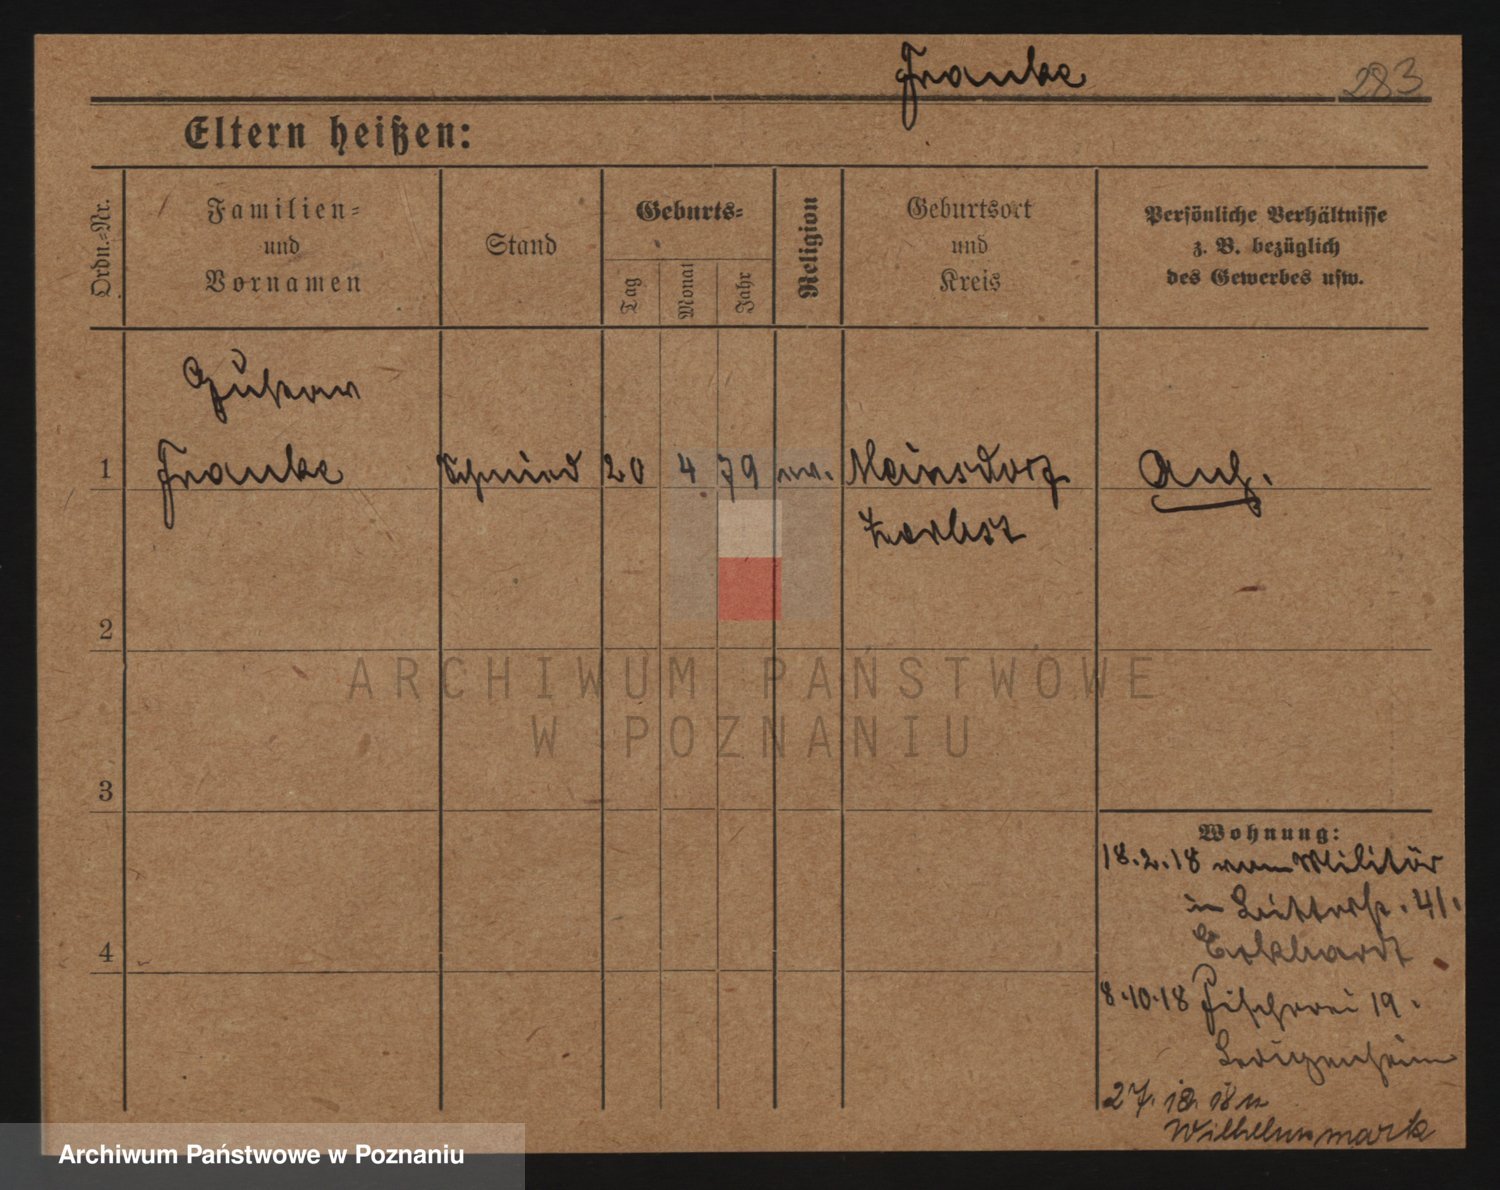 Franke 283
Eltern heißen:
Ordn.-Nr.
Familien-
und
Vornamen
Stand
Geburts-
Tag
Monat
Jahr
Religion
Geburtsort
und
Kreis
Persönliche Verhältnisse
z. B. bezüglich
des Gewerbes usw.
Gustav
1 Franke Schmied 20 4 79 ev. Meinsdorf Anh.
Zerbst
2
ARCHIWUM PAŃSTWOWE
W POZNANIU
3
Wohnung:
18.2.18 vom Militär
in 41.
Eckhardt
4
8.10.18 Fischerei 19.
27. 12. 18 n
Wilhelmsmark
Archiwum Państwowe w Poznaniu